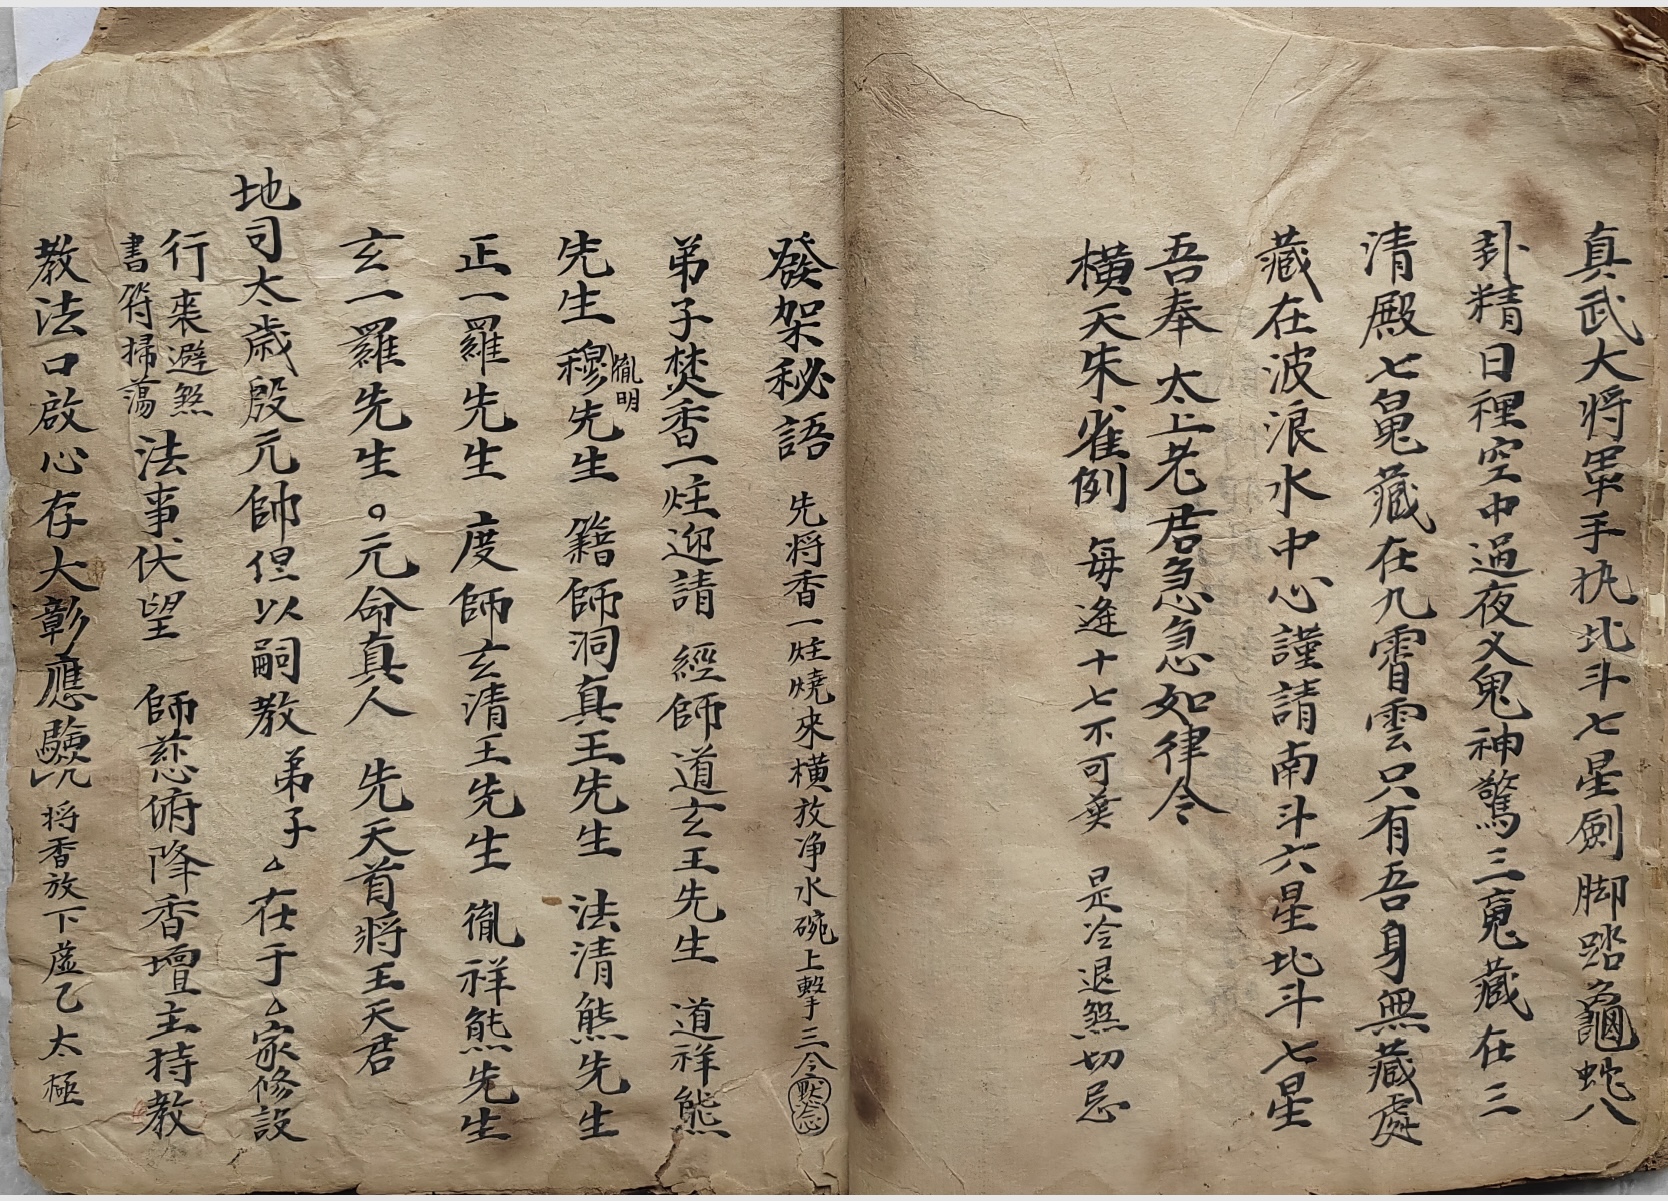 真武大将軍手执北斗七星劍脚踏龜蛇八
卦精日裡空中過夜义鬼神驚三魂藏在三
清殿七魄藏在九霄雲只有吾身無藏處
藏在波浪水中心謹請南斗六星北斗七星
吾奉太上老君急急如律令
橫天朱雀例 每逢十七不可葬 是冷退煞切忌
發架秘語 先将香一炷燒來橫放净水碗上擊三令默念
弟子焚香一炷迎請 經師道玄王先生 道祥熊
先生穆胤明先生 籍師洞真王先生 法清熊先生
正一羅先生 度師玄清王先生 胤祥熊先生
玄一羅先生。元命真人 先天首將王天君
地司太歲殷元帥但以嗣教 弟子厶在于厶家修設
行來避煞
書符掃蕩
法事伏望 師慈俯降香壇主持教
教法口啟心存大彰應驗 将香放下虚乙太極